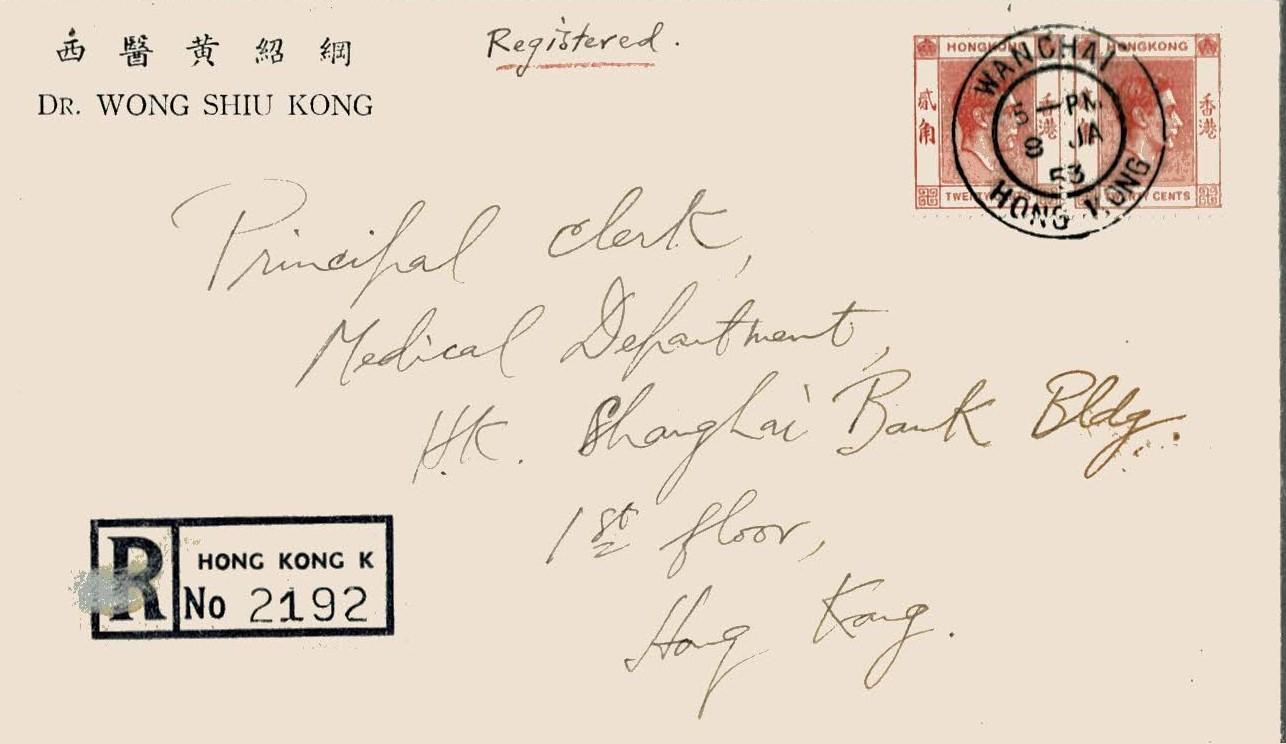 西 醫 黄 紹 綱
DR. WONG SHIU KONG
Registered.
HONGKONG
HONGKONG
貳角
香港
角
香港
TWENTY CENTS
TWENTY CENTS
WANCHAI
5 — PM.
8 JA
53
HONG KONG
Principal Clerk,
Medical Department,
H.K. Shanghai Bank Bldg.
1st floor,
Hong Kong.
R
HONG KONG K
No 2192